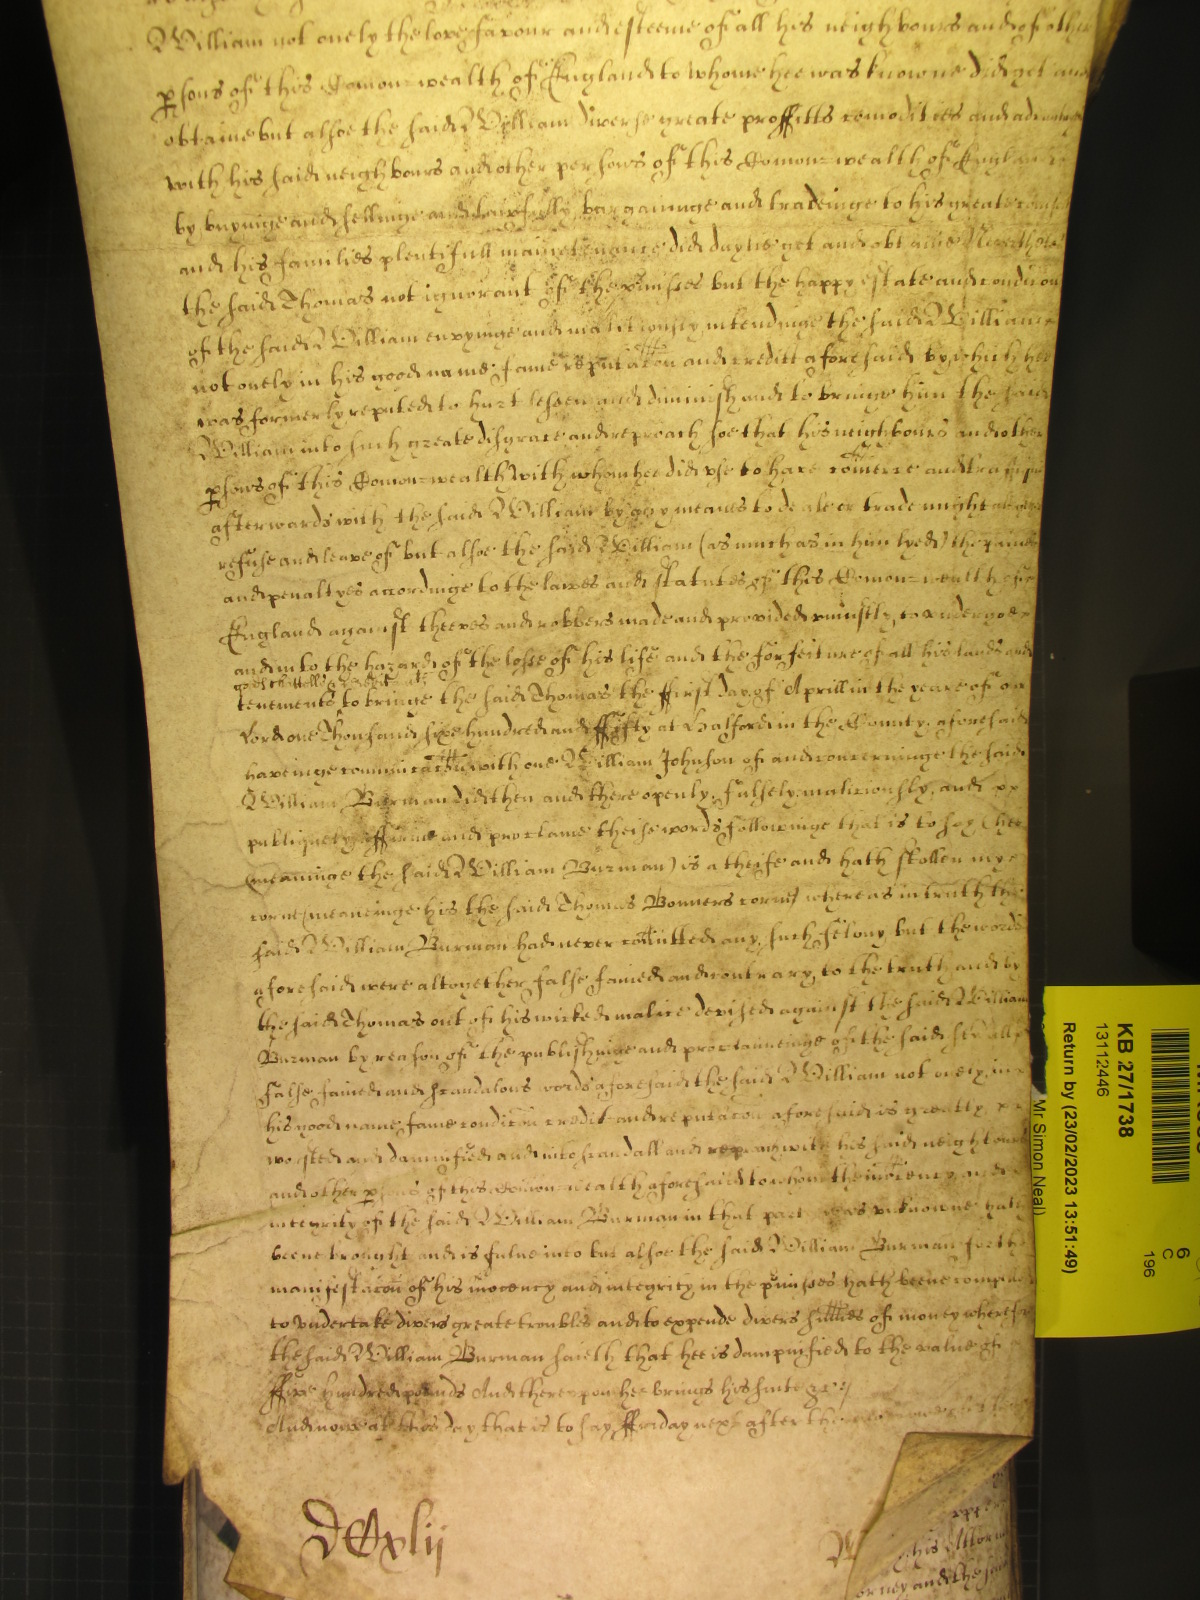 William not onely the love favour and esteeme of all his neighbours and of other
psons of this Comon=wealth of England to whome hee was knowne did get and
obtaine but alsoe the said William diverse greate proffitts comodities and advantages
with his said neighbours and other persons of this Comon=wealth of England
by buyinge and sellinge and lawfully bargaininge and tradeinge to his greate
and his families plentifull maintenance did dayne get and obtaine Neverthelesse
the said Thomas not ignorant of the pmisses but the happy estate and condicon
of the said William envyinge and malitiously intendinge the said William
not onely in his good name fame reputacon and creditt aforesaid by which hee
was formerly reputed to hurt lessen and diminish and to bringe him the said
William into such greate disgrace and reproach soe that his neighbours and other
psons of this Comon=wealth with whom hee did use to have comerce and traffique
afterwards with the said William by any meanes to deale or trade might
refuse and leave of but alsoe the said William (as much as in him lyed) the
and penaltyes accordinge to the lawes and statutes of this Comon=wealth of
England against theeves and robbers made and provided uniustly to undergoe
and into the hazard of the losse of his life and the forfeiture of all his lands and
goods chattells
tenements to bringe the said Thomas the ffirst day of Aprill in the yeare of our
Lord one Thousand sixe hundred and ffifty at Halford in the County aforesaid
haveinge comunicacon with one William Johnson of and concerninge the said
William Burman did then and there openly, falsely, malitiously, and
publiquely affirme and proclame theise words followinge that is to say (hee
(meaninge the said William Burman) is a theife and hath stollen my
corne (meaneinge his the said Thomas Bonners corne) whereas in truth the
said William Burman had never comitted any such felony but the words
aforesaid were altogether false fained and contrary to the truth and by
the said Thomas out of his wicked malice devised against the said William
Burman by reason of the publishinge and proclaimeinge of the said sevall
false fained and scandalous words aforesaid the said William not onely in
his good name fame condicon credit and reputacon aforesaid is greatly
worsted and damnified and into scandall and repugny with his said neighbours
and other psons of this Comon=wealth aforesaid to whom the inocency and
integrity of the said William Burman in that part was unknowne hath
beene brought and is falne into but alsoe the said William Burman for the
manifestacon of his inocency and integrity in the pmisses hath beene compelled
to undertake divers greate troubles and to expende divers summes of money wherefore
the said William Burman saieth that hee is dampnified to the value of
ffive hundred pounds And thereupon hee brings his suite &c
And nowe at this day that is to say ffriday next after the
DCxlii
his Attor
orney and the
KB 27/1738
13112446
Return by (23/02/2023 13:51:49)
Mr Simon Neal)
6
C
196